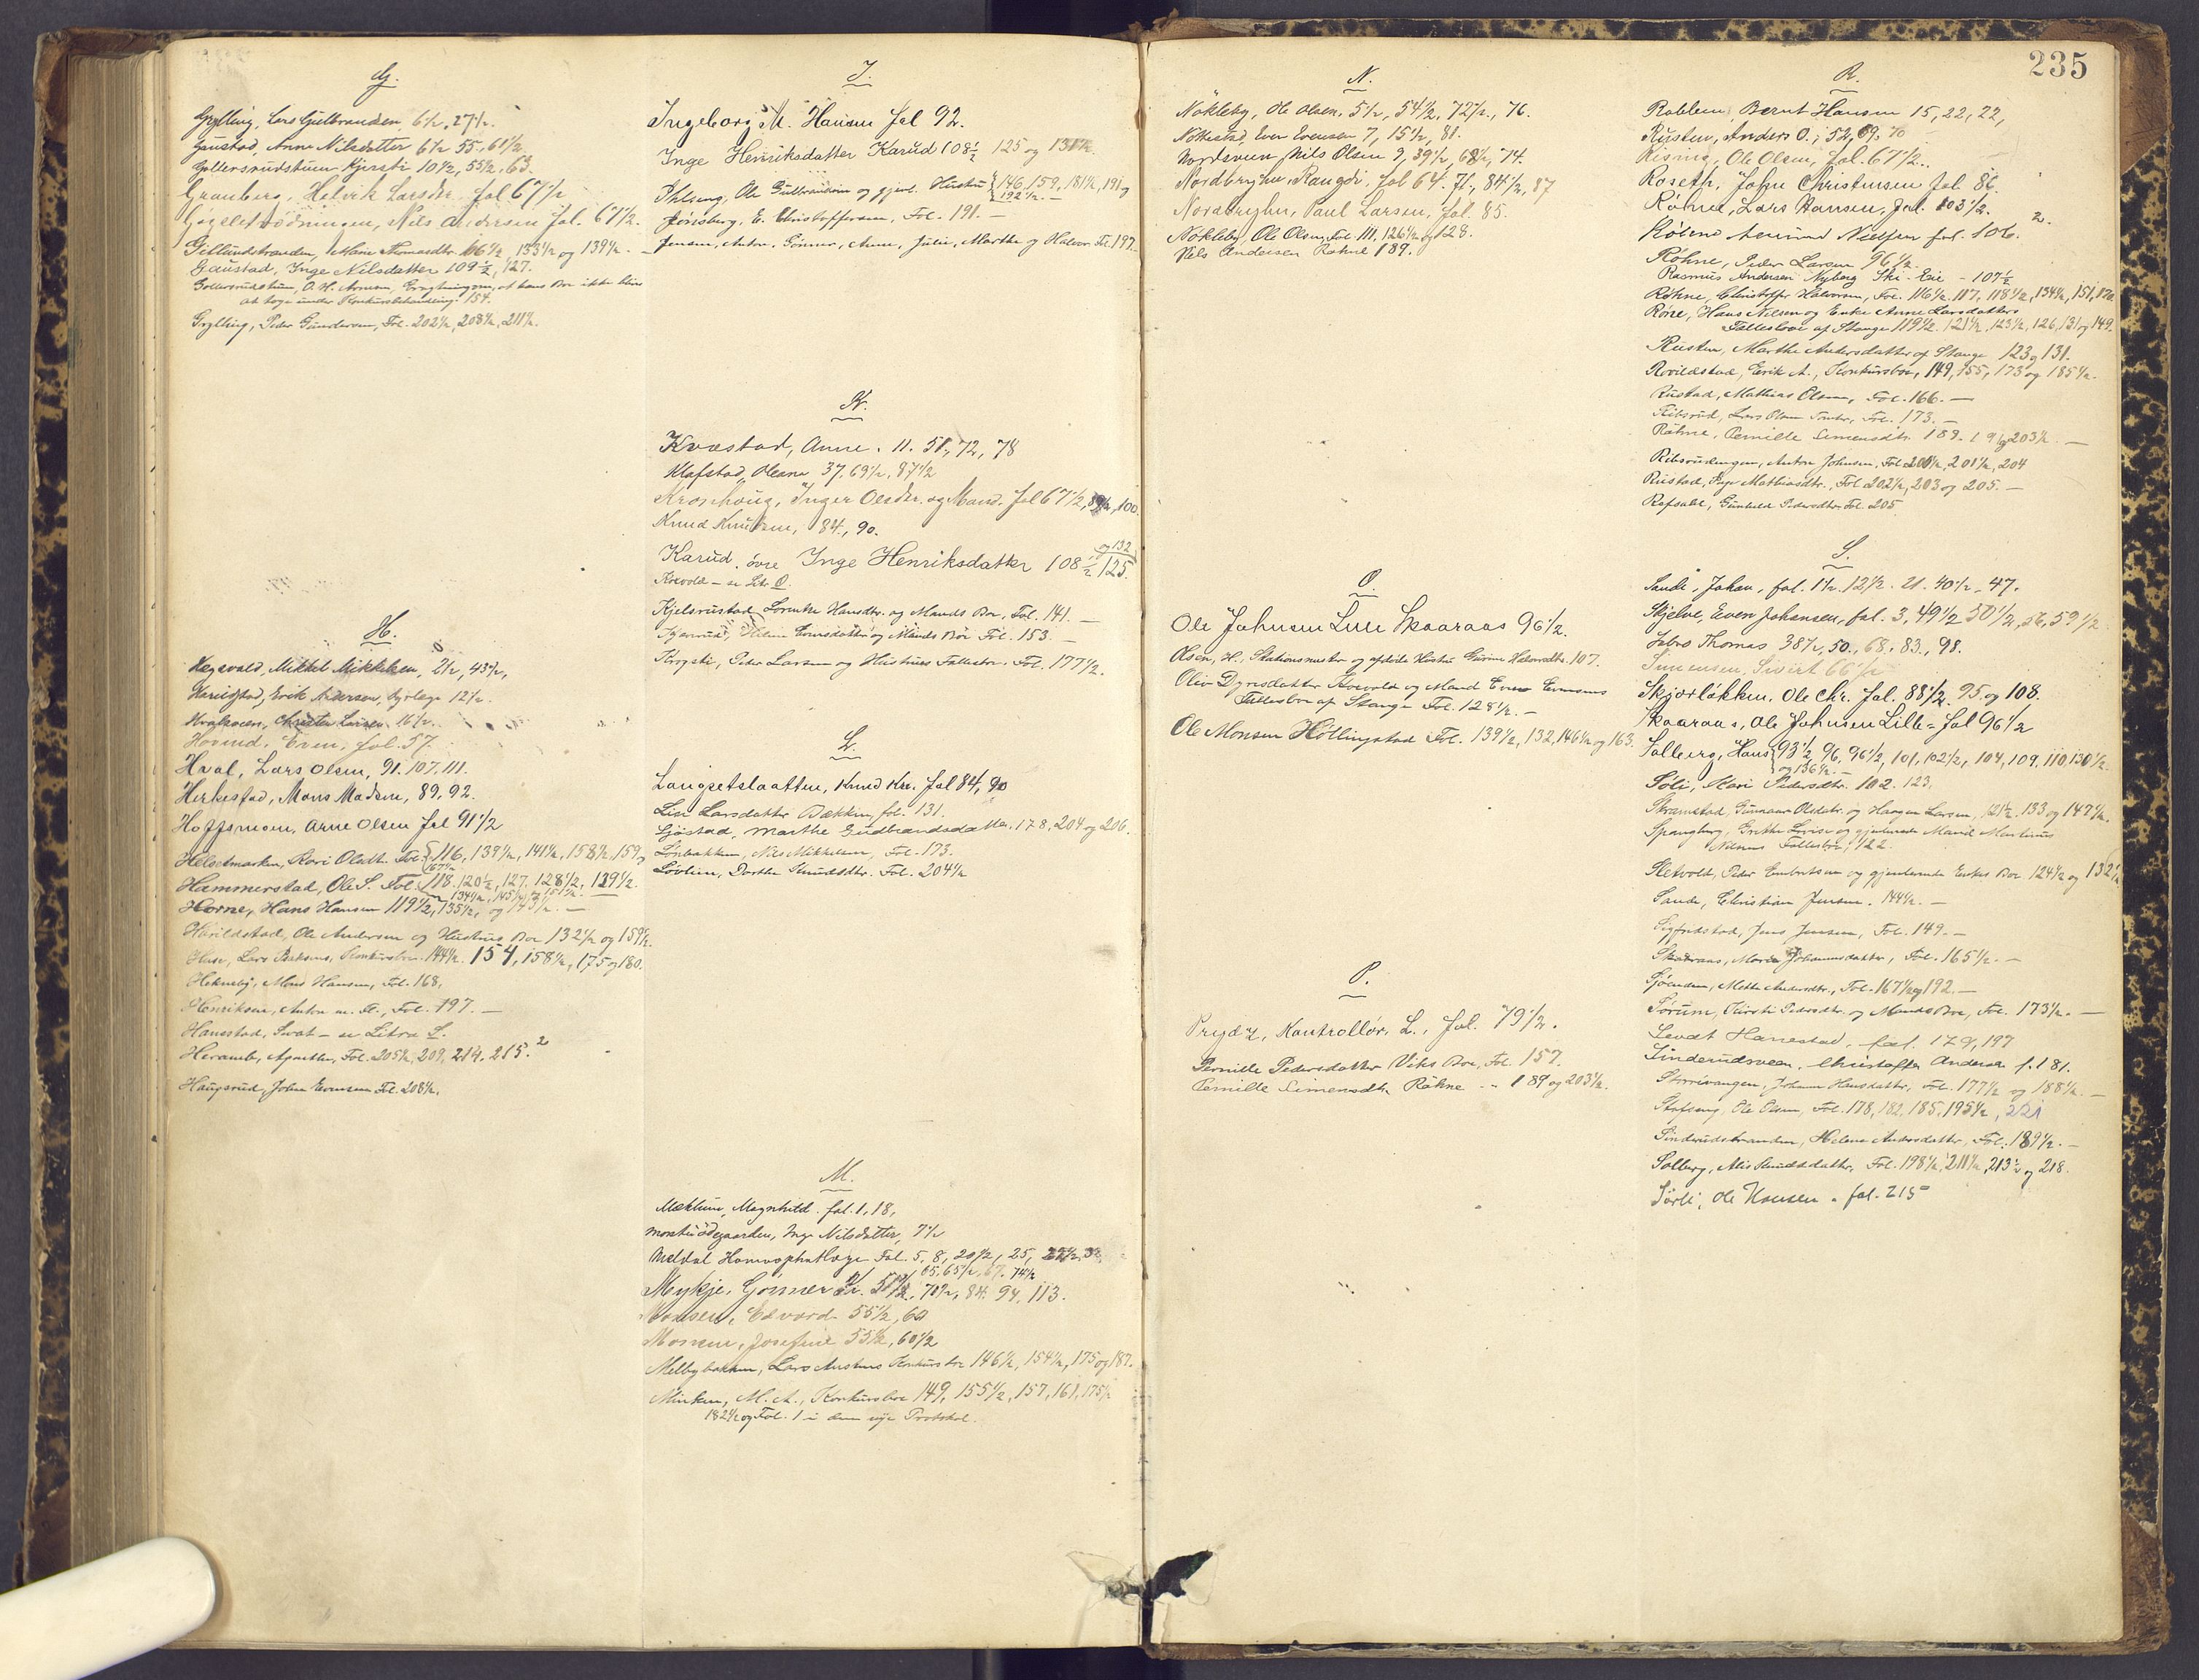 G.
Gylling, Lars Gulbrandsen 6½, 27½.
Gaustad, Anne Nilsdatter 6½ 55, 61½.
Gollersrudstuen Kjersti 10½, 55½, 63.
Granberg, Helvik Larsdr. fol 67½
Nils Andersen fol. 67½.
Gillundstranden, Marie Thomasdtr. 66½, 133½ og 139½.
Gaustad, Inge Nilsdatter 109½, 127.
Gollersrudstuen, O. H. Arnesen, at hans Bo ikke blive
at tage under Konkursbehandling. 154.
Gylling, Peder Gundersen, Fol. 202½, 208½, 211½.
H.
Hagevold, Mikkel Mikkelsen, 2½, 43½,
Harildstad, Erik Andersen, Dyrlæge 12½.
Christen Larsen 16½.
Hovind, Even, fol. 57.
Hval, Lars Olsen, 91. 107. 111.
Hirkestad, Mons Madsen, 89, 92.
Hoffsmoen, Arne Olsen fol 91½
Helsetmarken, Kari Olsdtr. Fol. 116, 139½, 141½, 158½, 159 og
167½
Hammerstad, Ole S. Fol. 118. 120½, 127. 128½, 129½.
134½, 145½ og 151½. —
Horne, Hans Hansen 119½, 135½, og 143½. —
Harildstad, Ole Andersen og Hustrus Bo 132½ og 159½.
Huse, Lars Konkursbo. 144½. 154, 158½, 175 og 180.
Hekneby, Mons Hansen, Fol. 168.
Henriksen, Anton m. Fl., Fol. 197. —
Hanestad, Sivat – se Litra S.
Heramb, Agnethe, Fol. 205½, 209, 214. 215.²
Haugsrud, Johan Evensen Fol. 208½.
I.
Ingeborg M. Hansen fol 92.
Inge Henriksdatter Karud 108½ 125 og 131½.
Ihlseng, Ole Gulbrandsen og gjenl. Hustru 146, 159, 181½, 191 og
192½. —
Jønsberg, E. Christoffersen, Fol. 191. —
Jensen, Anton, Gunnar, Anne, Julie, Marthe og Halvor. Fol. 197.
K.
Kvæstad, Anne. 11. 51, 72, 78
Klafstad, Oleana 37, 69½, 87½
Kroshoug, Inger Olesdr. og Mand. fol 67½, 89½, 100.
Knud Knudsen, 84, 90.
Karud, øvre Inge Henriksdatter 108½ 125. og 132
Korvold – se Litr. O.
Kjelsrustad Lorentze Hansdtr. og Mands Bo, Fol. 141. —
Evensdatter og Mands Bo Fol. 153. —
Krogsti, Peder Larsen og Hustrus Fællesbo. Fol. 177½.
L.
Langsetslaatten, Knud Kn. fol 84, 90
Lise Larsdatter Bækken fol. 131.
Ljøstad, Marthe Gudbrandsdatter. 178, 204 og 206.
Lønbakken, Nils Mikkelsen, Fol. 173.
Løvlien, Dorthe Knudsdtr. Fol. 204½
M.
Mæhlum, Magnhild. fol. 1, 18,
Inge Nilsdatter, 7½
Meldal Homøopathlæge Fol. 5, 8, 20½, 25, 27½, 32,
65, 65½, 67. 74½
Mykje, Gunner Kr. 51½, 70½, 84. 94. 113.
Monsen, Edvard 55½, 60
Monsen, Josefine 55½, 60½
Melbybakken, Lars Konkursbo 146½, 154½, 175 og 187.
Minken, M. A., Konkursbo 149, 155½, 157, 161, 175½
182½ og Fol. 1 i den nye Protokol.
235
N.
Nökleby, Ole Olsen, 5½, 54½, 72½, 76.
Nøkkestad, Even Evensen 7, 15½, 81.
Nordsveen Nils Olsen 9, 39½, 68½, 74.
Nordbryhn, Rangdi. fol 64. 71, 84½, 87
Nordbryhn, Paul Larsen, fol. 85.
Nøkleby, Ole Olsen, Fol. 111, 126½ og 128.
Nils Andersen Røhne 189.
O.
Ole Johnsen Lille Skaaraas 96½.
Olsen, H., Stationsmester og afdøde Hustru Gurine Halvorsdtr. 107.
Olive Dyresdatter Korvold og Mand Even Evensens
Fællesbo af Stange Fol. 128½. —
Ole Monsen Höllingstad Fol. 139½, 132, 146½ og 163.
P.
Prydz, Kontrollør, L., fol. 79½.
Pernille Pedersdatter Viks Bo, Fol. 157.
Pernille Simensdtr. Røhne -- 189 og 203½.
R.
Roblien Bernt Hansen 15, 22, 22,
Rusten, Anders O., 52, 69, 70
Rising, Ole Olsen, fol. 67½.
Roseth, John Christensen fol. 86.
Røhne, Lars Hansen, fol. 103½.
Röhne Amund Nielsen fol. 106. ².
Röhne, Peder Larsen 96½
Rasmus Andersen Nyberg Ski-Eie – 107½
Røhne, Christoffer Halvorsen, Fol. 116½, 117, 118½, 134½, 151, 170
Røne, Hans Nilsen og Enke Anne Larsdatters
Fællesbo af Stange 119½. 121½, 123½, 126, 131 og 149.
Rusten, Marthe Andersdatter af Stange 123 og 131.
Rovildstad, Erik A., Konkursbo, 149, 155, 173 og 185½.
Rustad, Mathias Olsen, Fol. 166. —
Ribsrud, Lars Olsen Fol. 173. —
Røhne, Pernille Simensdtr. 189. 191 og 203½. —
Ribsrudengen, Anton Johnsen, Fol. 200½, 201½, 204
Rustad, Inge Mathiasdtr., Fol. 202½, 203 og 205. —
Rafsahl, Gunhild Pedersdtr. Fol. 205.
S.
Sande, Johan, fol. 1½. 12½. 21. 40½, 47.
Skjelve, Even Johansen, fol. 3, 49½ 50½, 56, 59½
Sæbro Thomas 38½, 50, 68, 83, 98.
Simensen, Sivert 66½
Skjærløkken, Ole Chr. fol. 88½, 95 og 108.
Skaaraas, Ole Johnsen Lille – fol 96½
Solberg, Hans 93½, 96, 96½, 101, 102½, 104, 109, 110 130½.
og 136½. —
Söli, Kari Pedersdtr. 102. 123.
Stramstad, Gunnar Olsdatr. og Haagen Larsen, 121½, 133 og 147½.
Spangberg, Grethe Lovise og gjenlevende Mand Martinus
Nilsens Fællesbo, 122
Sletvold, Peder Embretsen og gjenlevende Enkes Bo 124½ og 132½
Sande, Christian Jensen. 144½. —
Sigfridstad, Jens Jensen, Fol. 149. —
Skaaraas, Maria Johannesdatter, Fol. 165½. —
Sjøenden, Mette Andersdtr., Fol. 167½ og 192. —
Sørum, Kirsti Pedersdtr. og Mands Bo, Fol. 173½. —
Sevat Hanestad, fol. 179, 197
Sinderudsveen, Christoffer Anderse f. 181.
Storrivangen, Johanne Hansdatter, Fol. 177½ og 188½. —
Stafseng, Ole Olsen, Fol. 178, 182, 185, 195½, 221
Sinderudstranden, Helene Andersdatter, Fol. 189½. —
Solberg, Alis Knudsdatter, Fol. 198½, 211½, 213½ og 218.
Sörli, Ole Hansen. fol. 215